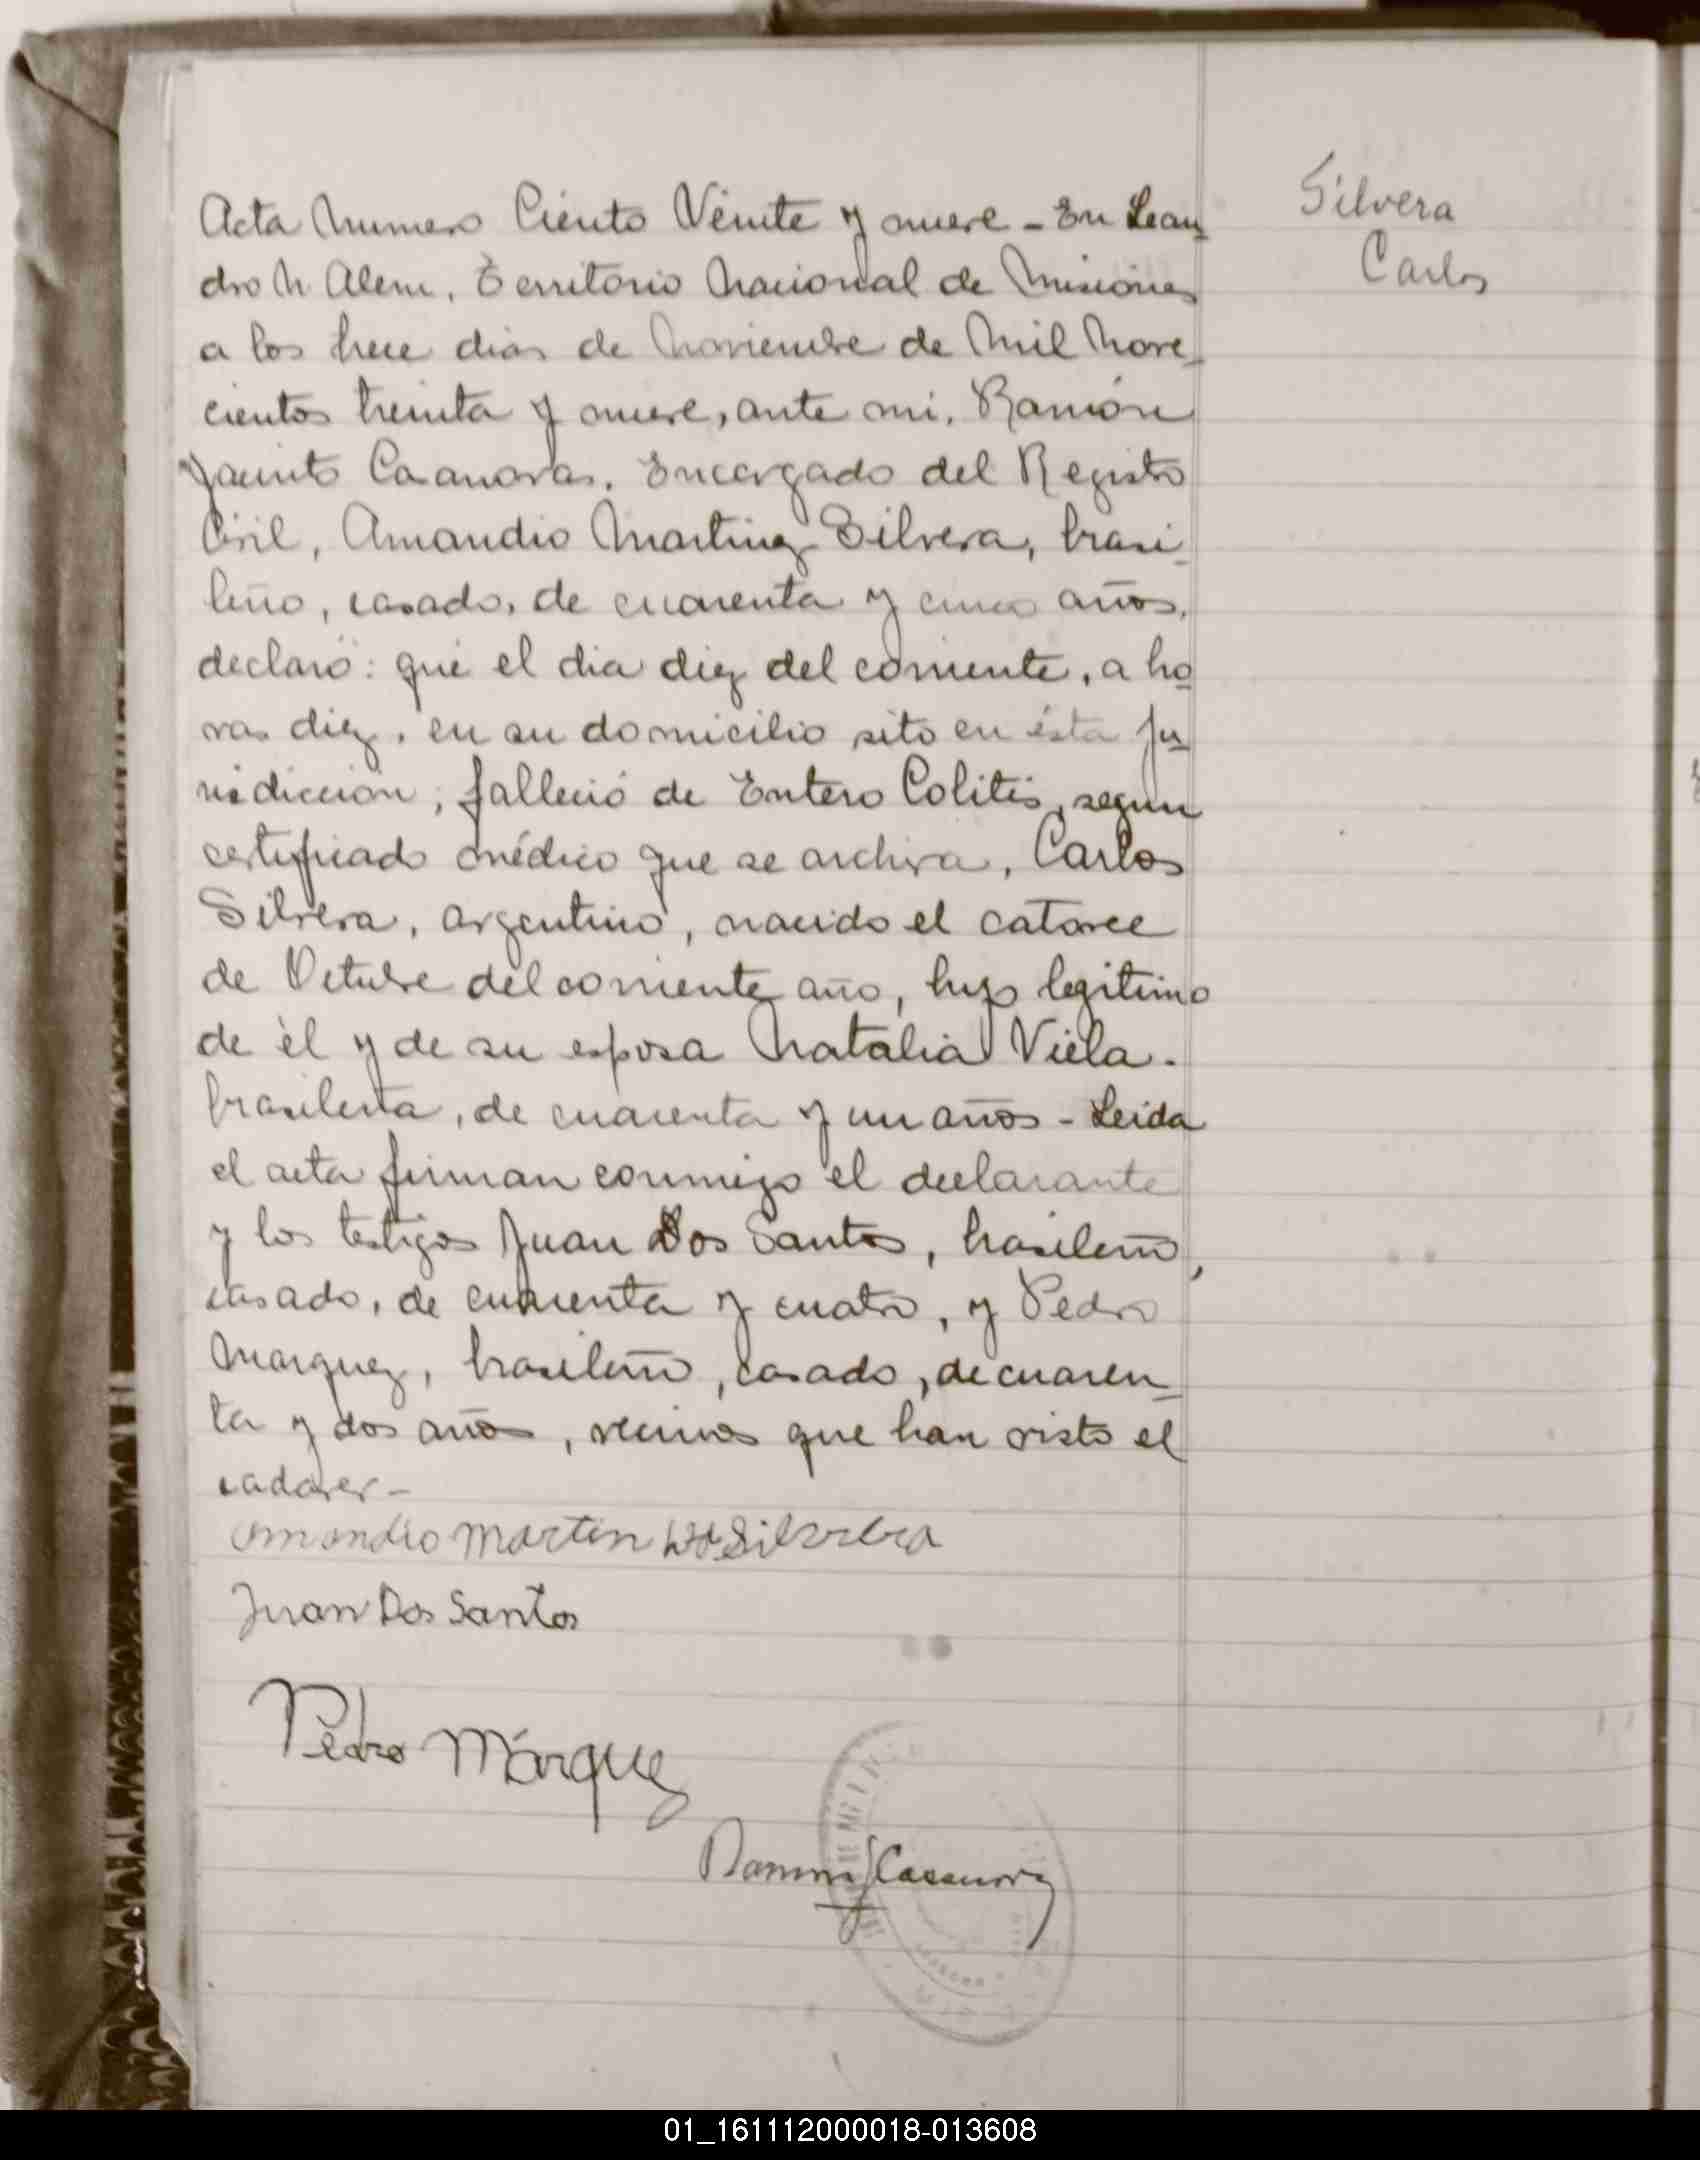 Acta Numero Ciento Veinte y nueve - En Lean
dro N Alem, Territorio Nacional de Misiones
a los trece dias de Noviembre de Mil Nove_
cientos treinta y nueve, ante mi, Ramón
Jacinto Casanovas, Encargado del Registro
Civil, Amandio Martinez Silvera, brasi_
leño, casado, de cuarenta y cinco años,
declaró: que el dia diez del corriente, a ho_
ras diez, en su domicilio sito en ésta ju_
risdicción, falleció de Entero Colitis, segun
certificado médico que se archiva, Carlos
Silvera, argentino, nacido el catorce
de Octubre del corriente año, hijo legitimo
de él y de su esposa Natalia Viela.
brasileña, de cuarenta y un años - Leida
el acta firman conmigo el declarante
y los testigos Juan Dos Santos, brasileño,
casado, de cuarenta y cuatro, y Pedro
Marquez, brasileño, casado, de cuaren_
ta y dos años, vecinos que han visto el
cadaver -
Silvera
Carlos
Juan Dos Santos
Pedro Márquez
Ramon J Casanova
01_161112000018-013608